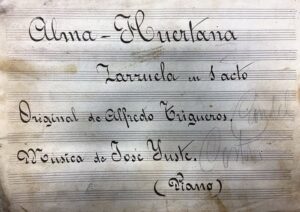 Alma-Huertana
Zarzuela en 1 acto
Original de Alfredo Trigueros.
Música de José Yuste.
(Piano)